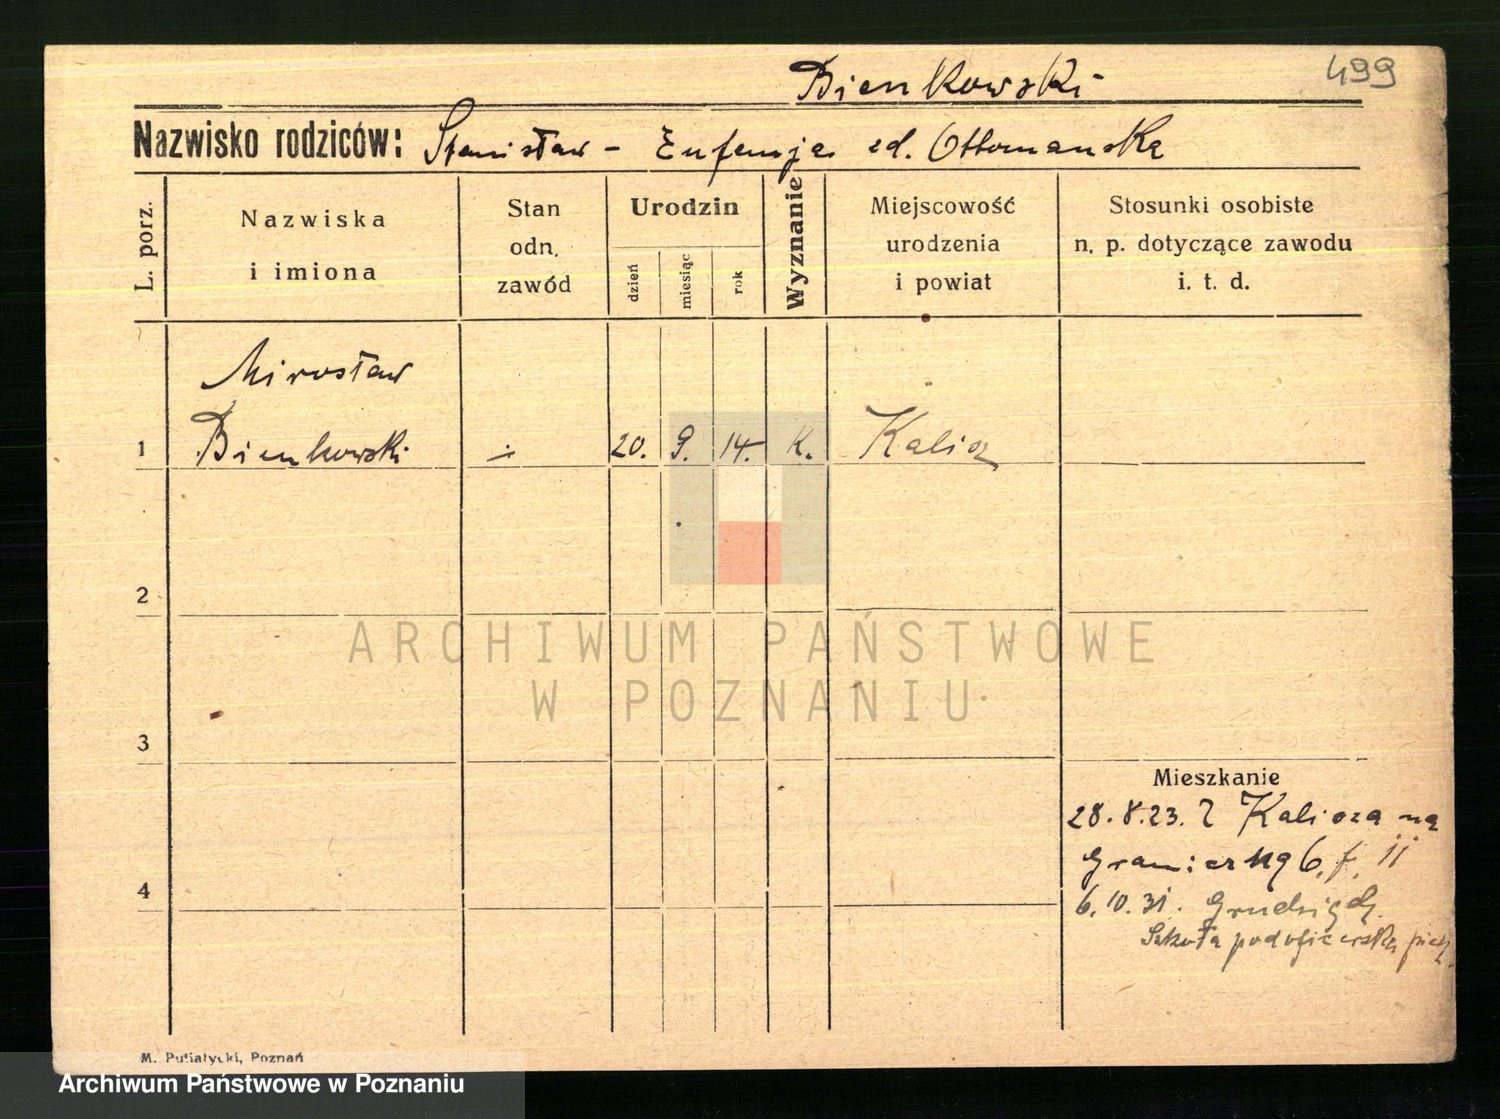 Bienkowski
499
Nazwisko rodziców: Stanisław - Eufemja zd. Ottomańska
L. porz.
Nazwiska
i imiona
Stan
odn.
zawód
Urodzin
dzień
miesiąc
rok
Wyznanie
Miejscowość
urodzenia
i powiat
Stosunki osobiste
n. p. dotyczące zawodu
i. t. d.
Mirosław
1 Bienkowski ÷ 20. 9. 14. K. Kalisz
2
ARCHIWUM PAŃSTWOWE
W POZNANIU
3
Mieszkanie
28.8.23. Z Kalisza na
6. II
4
6.10.31. Grudziądz.
Szkoła podoficerska
M. Putiatycki, Poznań
Archiwum Państwowe w Poznaniu